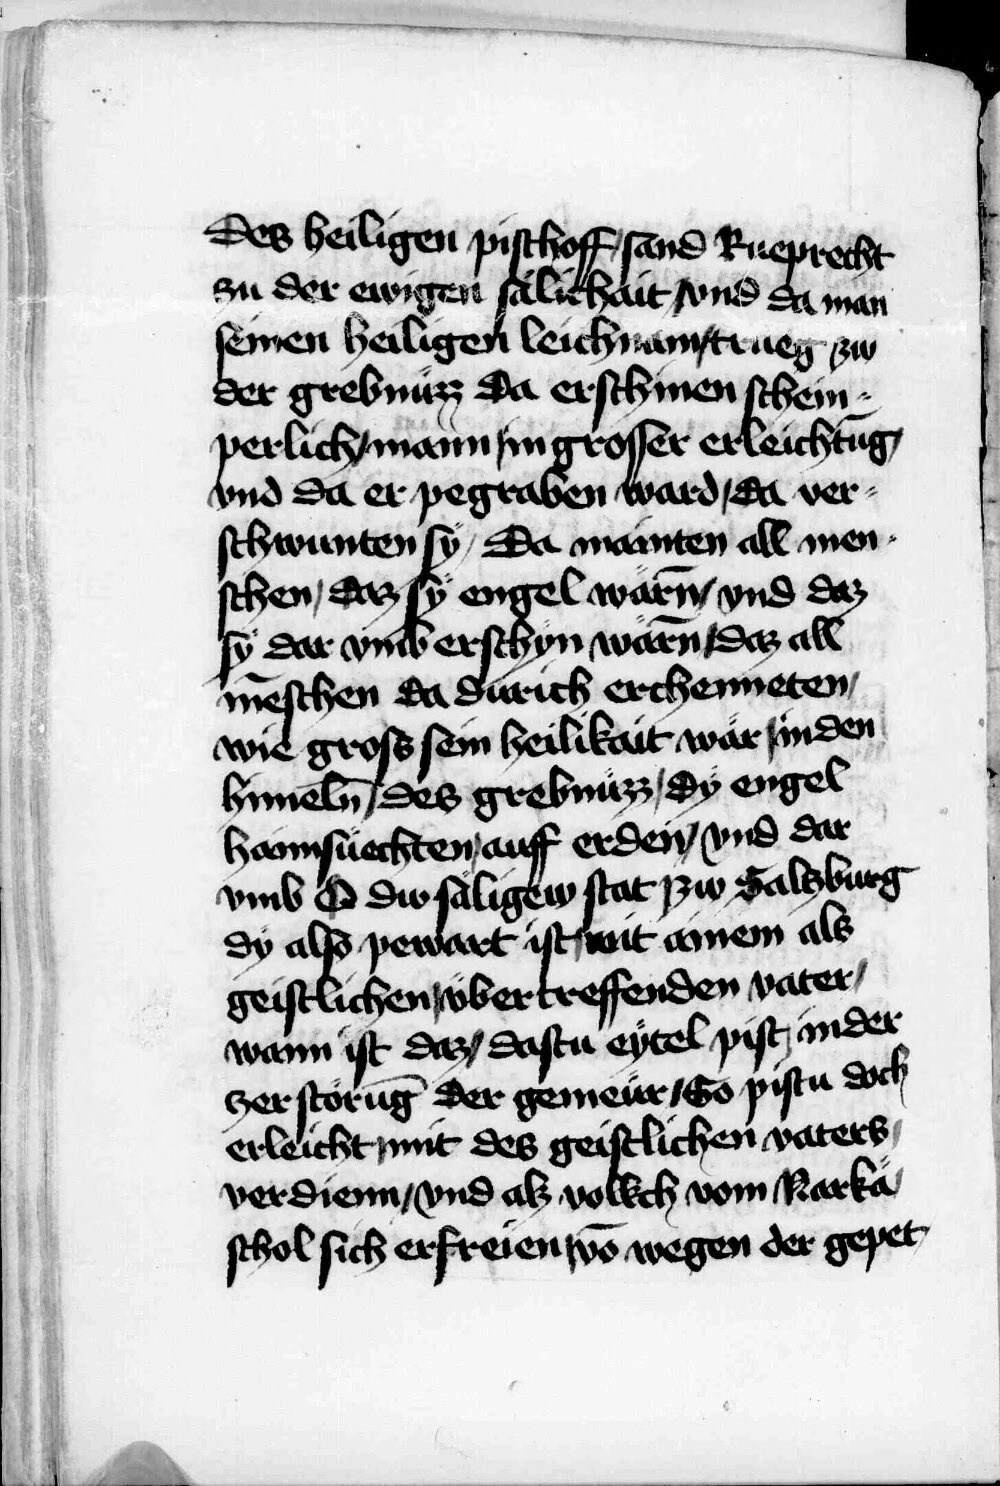 Des heiligen pischoff / sand Rueprecht
zu der ewigen sälichait / vnd da man
seinen heiligen leichnam / trueg zw
der grebnüzz Da erschinen schein-
perlich / mann / in grosser erleichtūg /
vnd da er pegraben ward / da ver-
schwunten sÿ / Da mainten all men-
schen / daz sÿ engel wärn̄ / vnd daz
sÿ dar vmb erschÿn wärn̄ / daz all
mēschen da durich erchenneten /
wie gross sein heilikait wär / in den
himēln̄ / des grebnüzz / dÿ engel
haimsüechten / auff erden / vnd dar
vmb O dw säligew stat zw Saltzburg
dÿ also pewart ist / mit ainem als
geistlichen / vbertreffenden vater /
wann ist daz / dastu eÿtel pist / in der
zerstörūg der gemeür / So pistu doch
erleicht / mit des geistlichen vaters /
verdienn / vnd alz volkch vom Karkä /
schol sich erfreien / vō wegen der gepet /